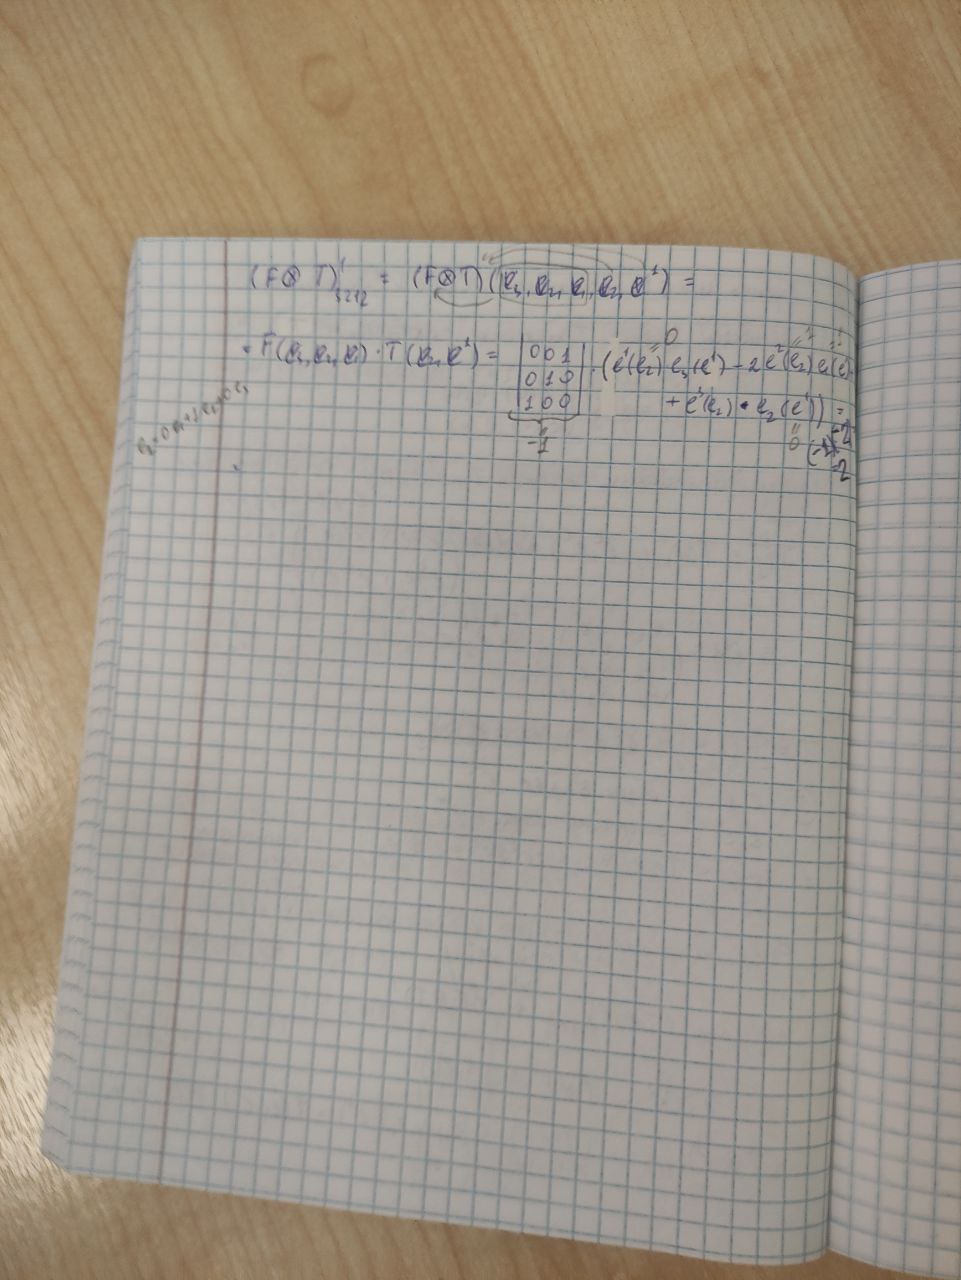 (F⊗T)¹₃₂₁₂ = (F⊗T)(e₃, e₂, e₁, e₂, e¹) =
= F(e₃, e₂, e₁) · T(e₂, e¹) = |0 0 1| · (e¹(e₂) e₃(e¹) - 2e²(e₂) e₁(e¹)
|0 1 0| + e³(e₂) · e₂(e¹)) =
|1 0 0|
-1
0
(-1)(-2)
= 2